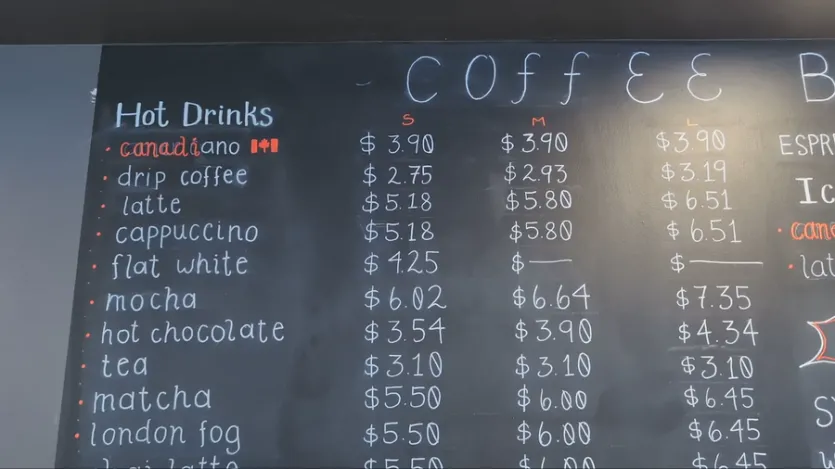 COffEE B
Hot Drinks S M L
canadiano $ 3.90 $ 3.90 $3.90 ESPR
drip coffee $ 2.75 $ 2.93 $3.19
latte $5.18 $5.80 $6.51 Ic
cappuccino $5.18 $5.80 $6.51 cana
flat white $4.25 $ $ lat
mocha $6.02 $6.64 $7.35
hot chocolate $3.54 $3.90 $4.34
tea $3.10 $3.10 $3.10
matcha $5.50 $6.00 $6.45
london fog $5.50 $6.00 $6.45
latte $5.50 $6.00 $6.45